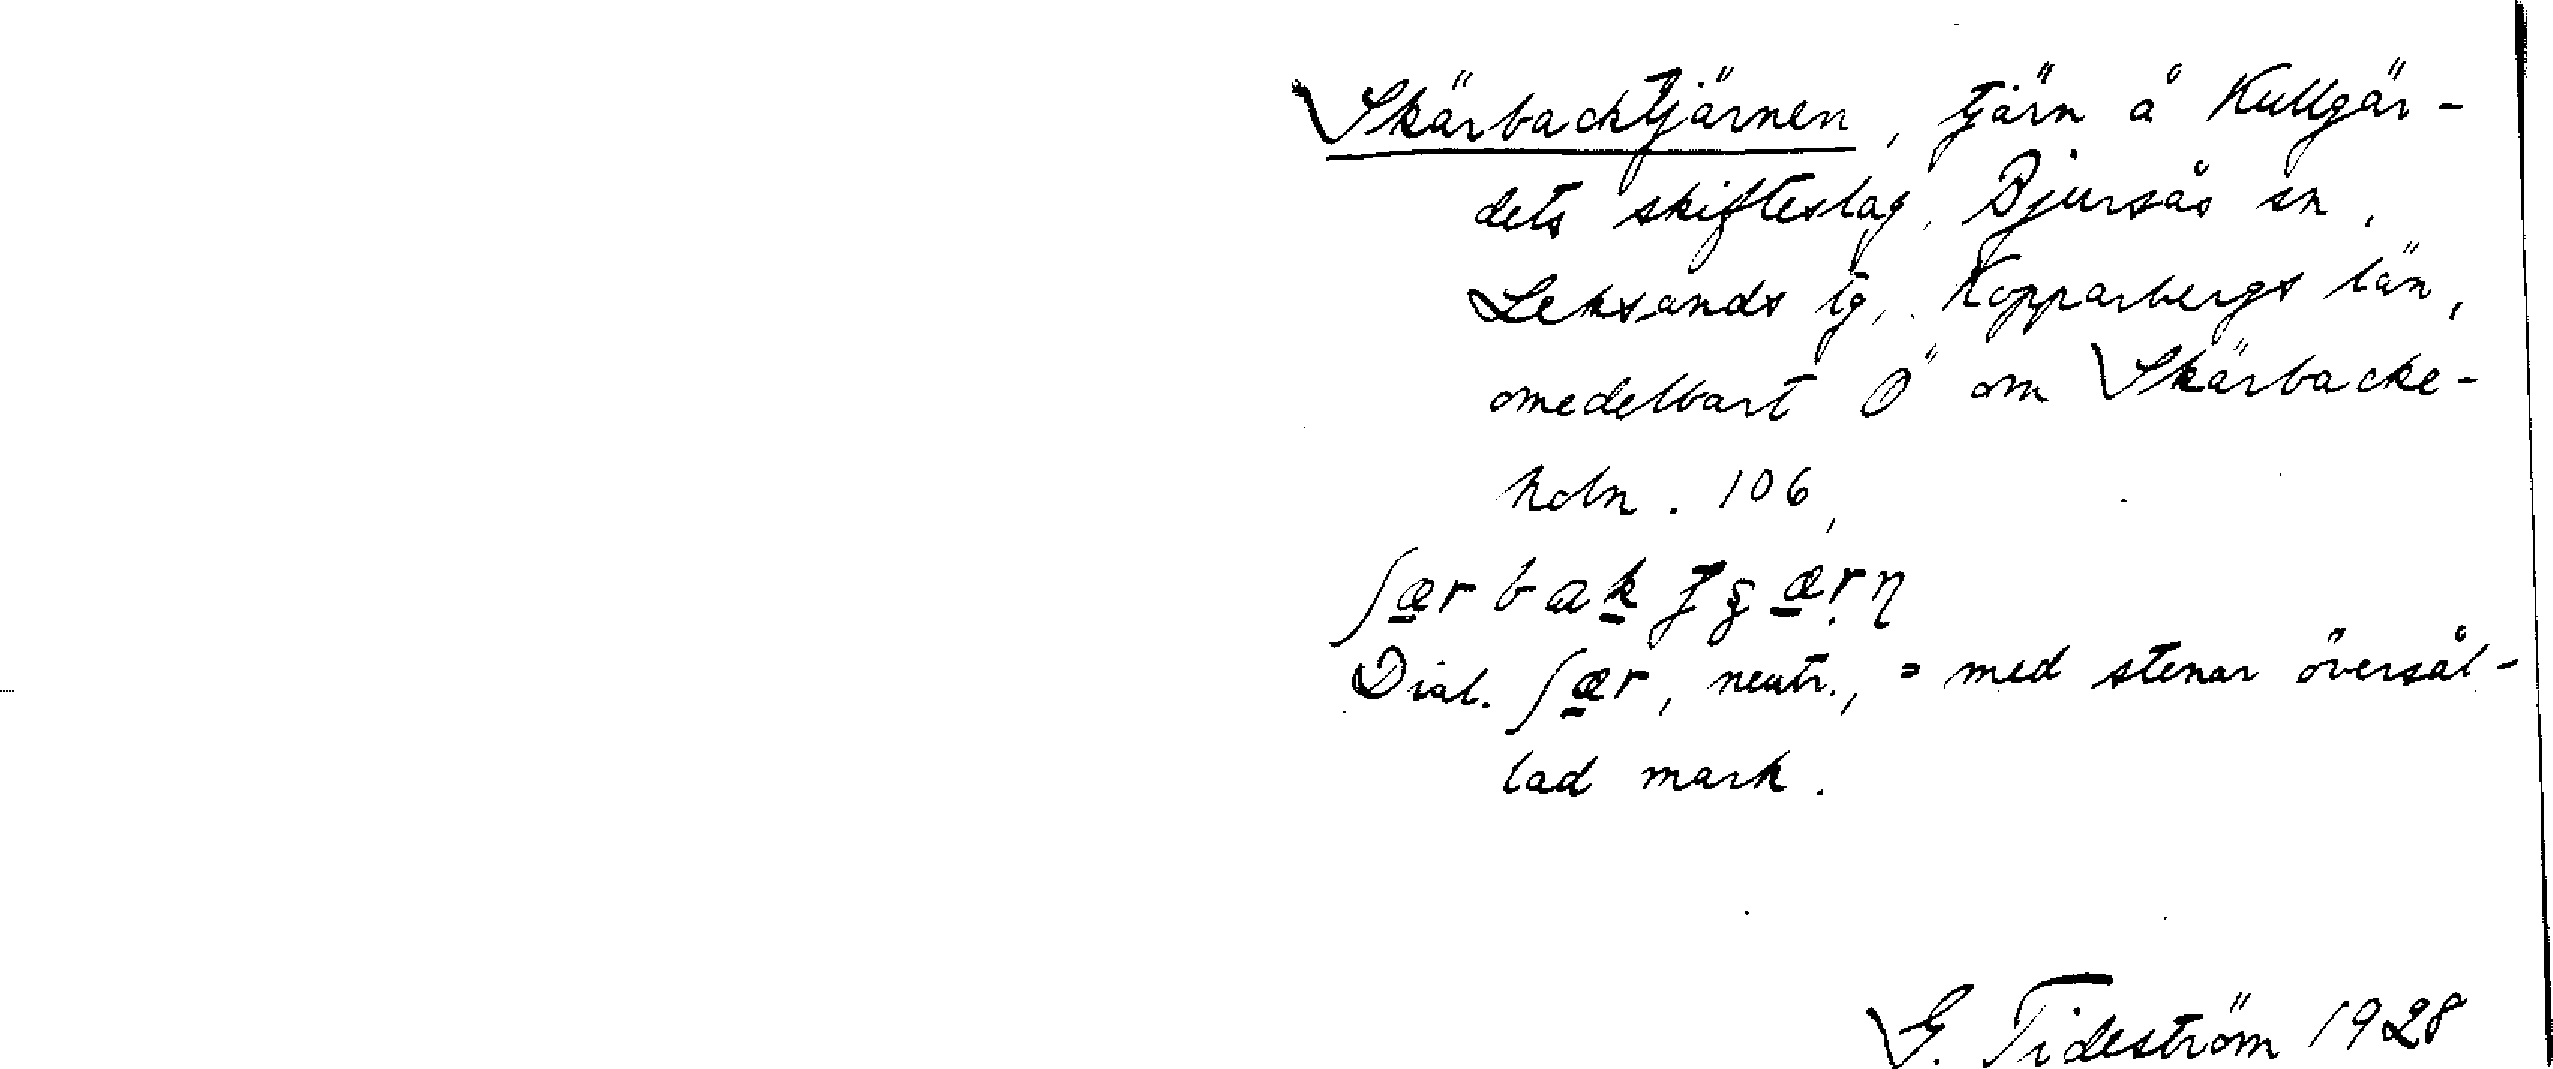 Skärbacktjärnen, tjärn å Kullgär-
dets skifteslag, Bjursås sn,
Leksands tg, Kopparbergs län,
omedelbart Ö om Skärbacke-
holn. 106,
ʃær bak
Dial. ʃær, neutr., = med stenar översål-
lad mark.
G. Tideström 1928